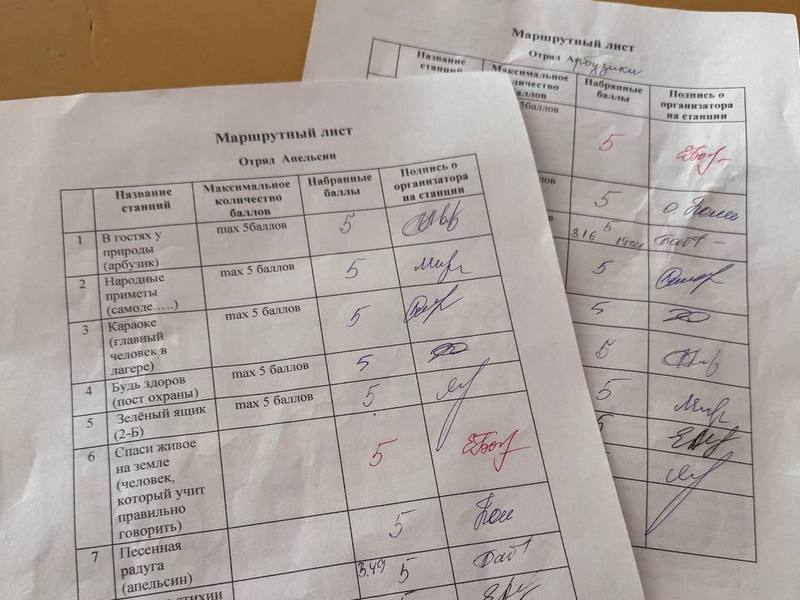 Маршрутный лист
Отряд Арбузики
Название
станций
Максимальное
количество
баллов
Набранные
баллы
Подпись о
организатора
на станции
5баллов
5
5
3.16 5
5
5
5
5
5
Маршрутный лист
Отряд Апельсин
Название
станций
Максимальное
количество
баллов
Набранные
баллы
Подпись о
организатора
на станции
1 В гостях у max 5баллов 5
природы
(арбузик)
2 Народные max 5 баллов 5
приметы
(самоде.....)
3 Караоке max 5 баллов 5
(главный
человек в
лагере)
4 Будь здоров max 5 баллов 5
(пост охраны)
5 Зелёный ящик max 5 баллов 5
(2-Б)
6 Спаси живое 5
на земле
(человек,
который учит
правильно
говорить)
7 Песенная 5
радуга
(апельсин) 3.49 5
стихии